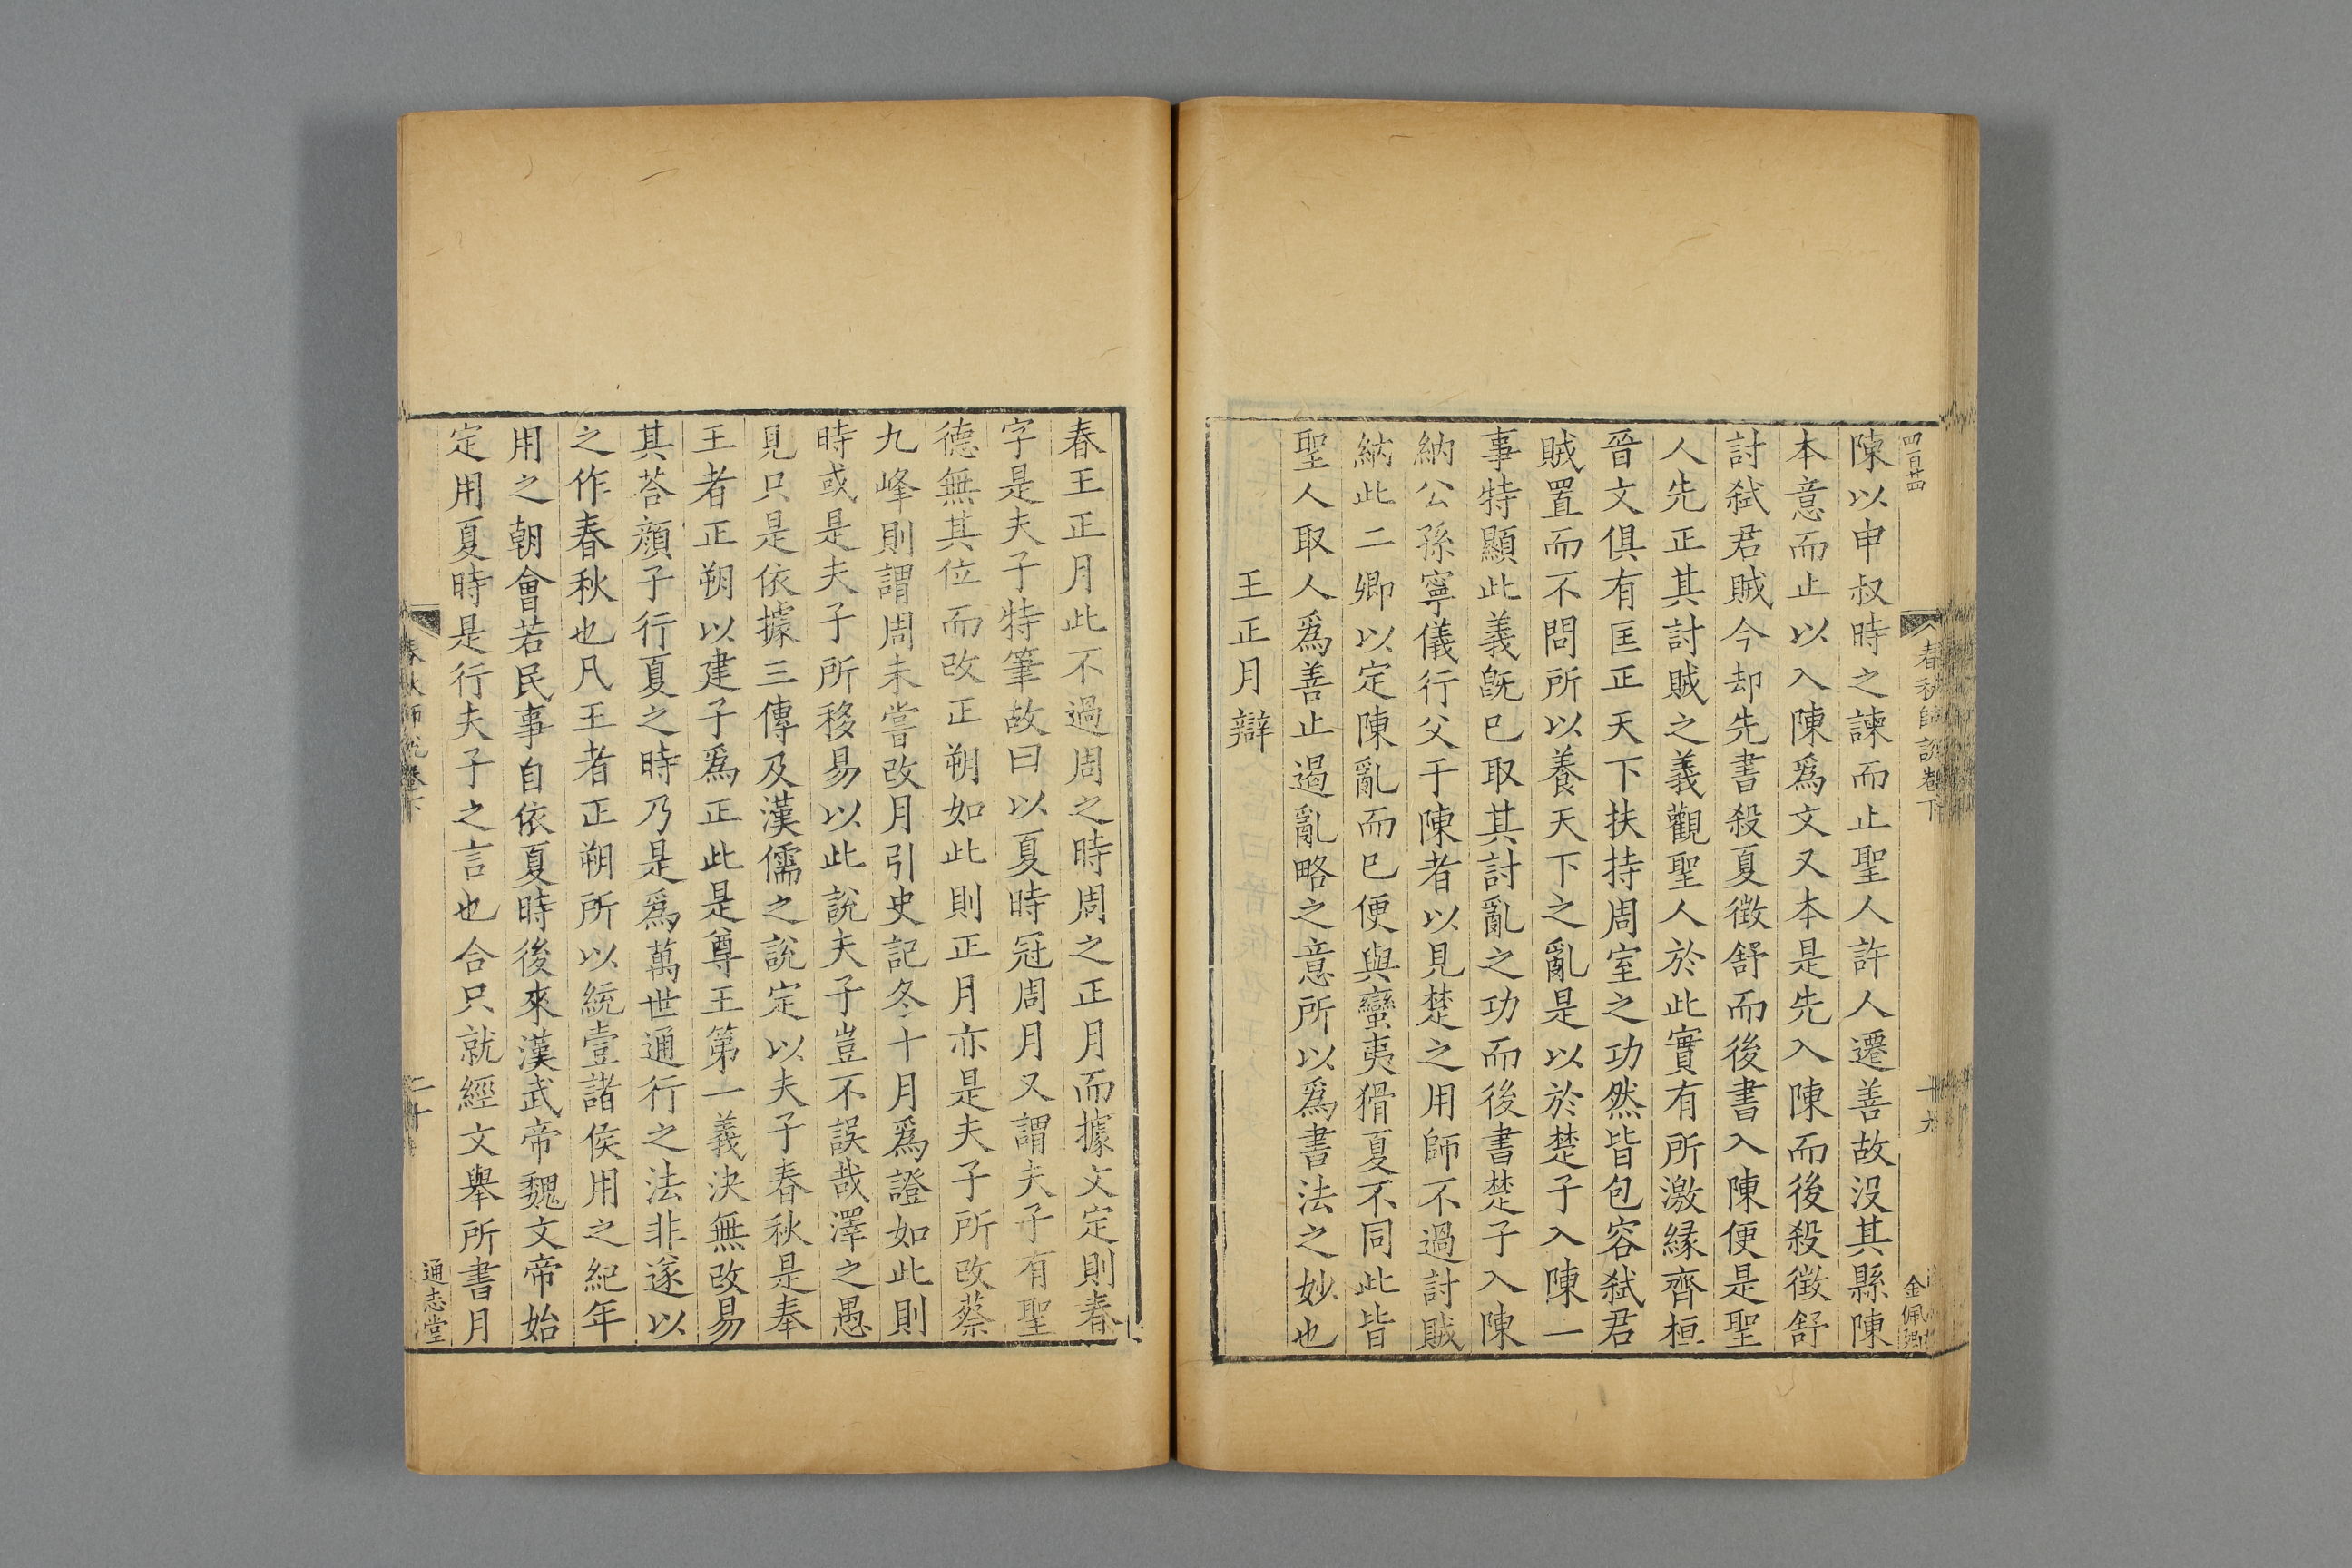 四百廿四
春秋師說卷下
十九
金佩卿
陳以申叔時之諫而止聖人許人遷善故沒其縣陳
本意而止以入陳爲文又本是先入陳而後殺徵舒
討弒君賊今却先書殺夏徵舒而後書入陳便是聖
人先正其討賊之義觀聖人於此實有所激緣齊桓
晉文俱有匡正天下扶持周室之功然皆包容弒君
賊置而不問所以養天下之亂是以於楚子入陳一
事特顯此義旣已取其討亂之功而後書楚子入陳
納公孫寧儀行父于陳者以見楚之用師不過討賊
納此二卿以定陳亂而已便與蠻夷猾夏不同此皆
聖人取人爲善止遏亂略之意所以爲書法之妙也
王正月辯
春王正月此不過周之時周之正月而據文定則春
字是夫子特筆故曰以夏時冠周月又謂夫子有聖
德無其位而改正朔如此則正月亦是夫子所改蔡
九峰則謂周未嘗改月引史記冬十月爲證如此則
時或是夫子所移易以此說夫子豈不誤哉澤之愚
見只是依據三傳及漢儒之說定以夫子春秋是奉
王者正朔以建子爲正此是尊王第一義決無改易
其荅顏子行夏之時乃是爲萬世通行之法非遂以
之作春秋也凡王者正朔所以統壹諸侯用之紀年
用之朝會若民事自依夏時後來漢武帝魏文帝始
定用夏時是行夫子之言也合只就經文舉所書月
春秋師說卷下
二十
通志堂